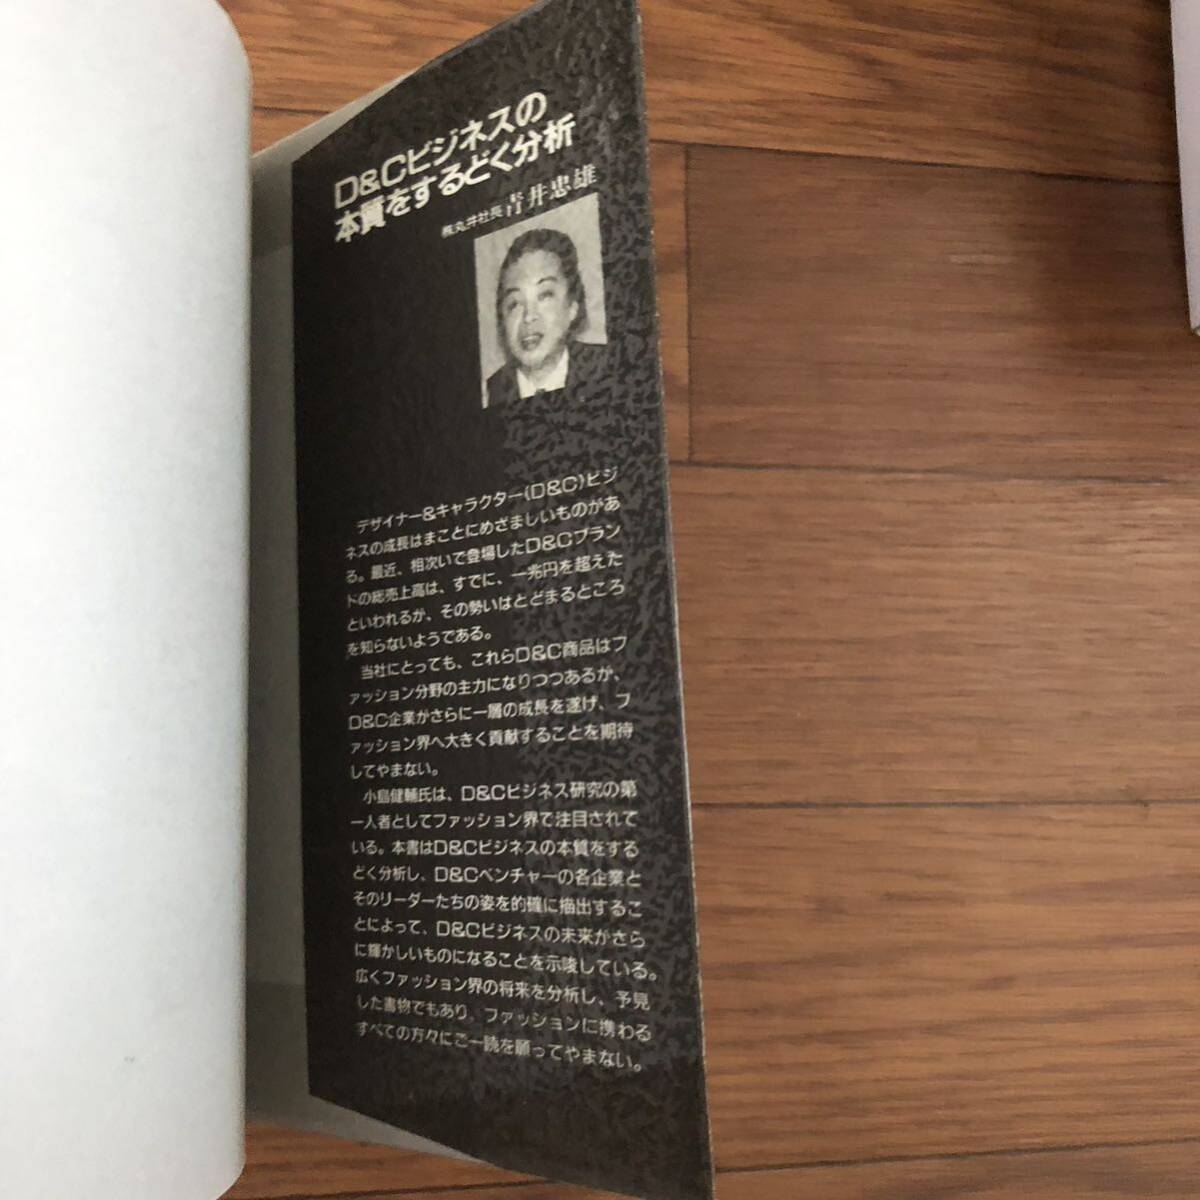 D&Cビジネスの
本質をするどく分析
㈱丸井社長 青井忠雄
デザイナー&キャラクター(D&C)ビジ
ネスの成長はまことにめざましいものがあ
る。最近、相次いで登場したD&Cブラン
ドの総売上高は、すでに、一兆円を超えた
といわれるが、その勢いはとどまるところ
を知らないようである。
当社にとっても、これらD&C商品はフ
ァッション分野の主力になりつつあるが、
D&C企業がさらに一層の成長を遂げ、フ
ァッション界へ大きく貢献することを期待
してやまない。
小島健輔氏は、D&Cビジネス研究の第
一人者としてファッション界で注目されて
いる。本書はD&Cビジネスの本質をする
どく分析し、D&Cベンチャーの各企業と
そのリーダーたちの姿を的確に描出するこ
とによって、D&Cビジネスの未来がさら
に輝かしいものになることを示唆している。
広くファッション界の将来を分析し、予見
した書物でもあり、ファッションに携わる
すべての方々にご一読を願ってやまない。